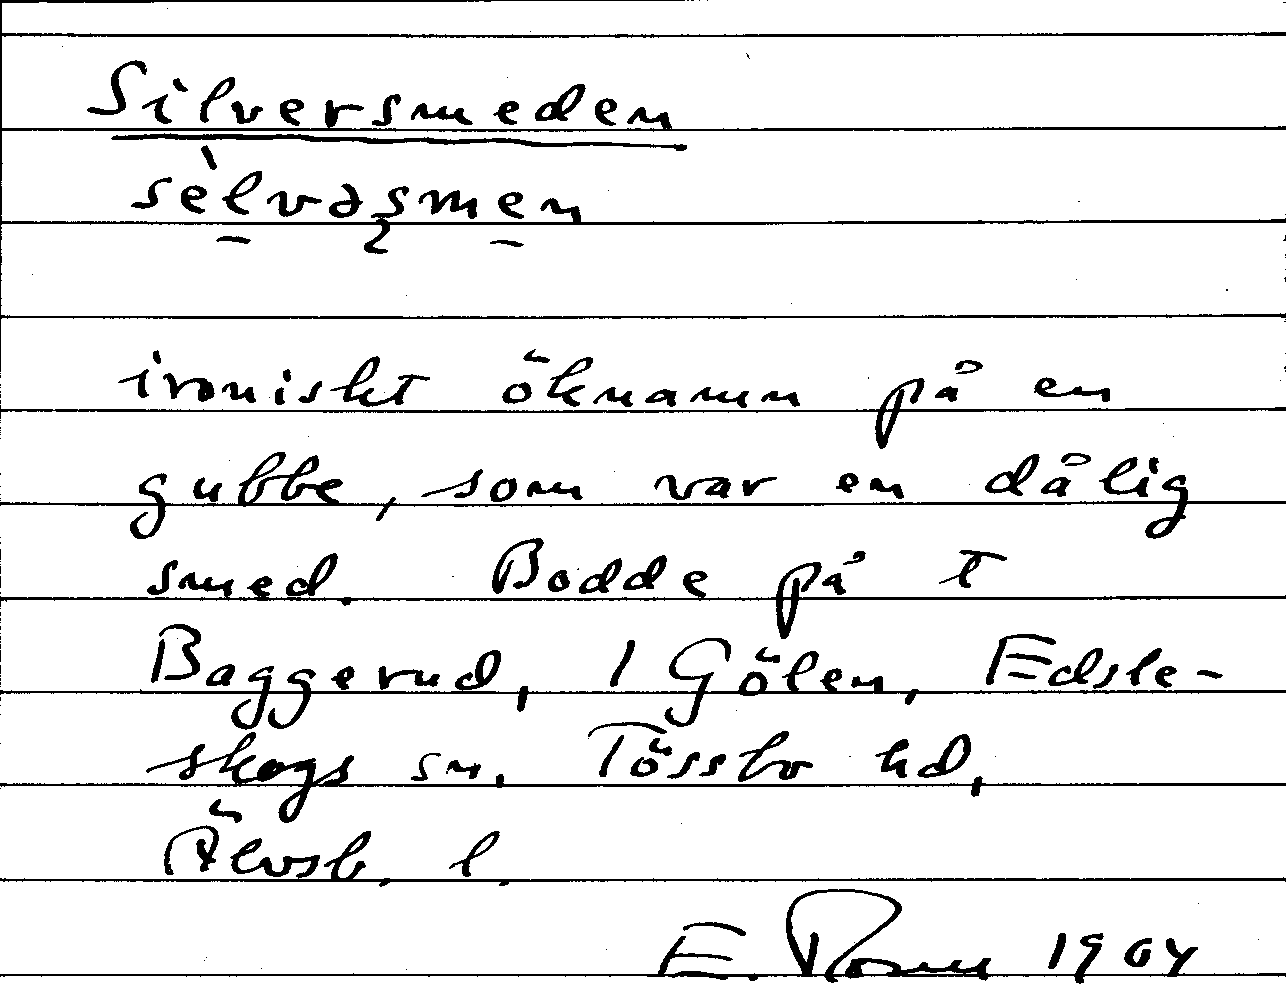 Silversmeden
sèlvəsmen
ironiskt öknamn på en
gubbe, som var en dålig
smed. Bodde på t
Baggerud, 1 Gölen, Edsle-
skogs sn. Tössbo hd,
Älvsb. l.
E. 1904